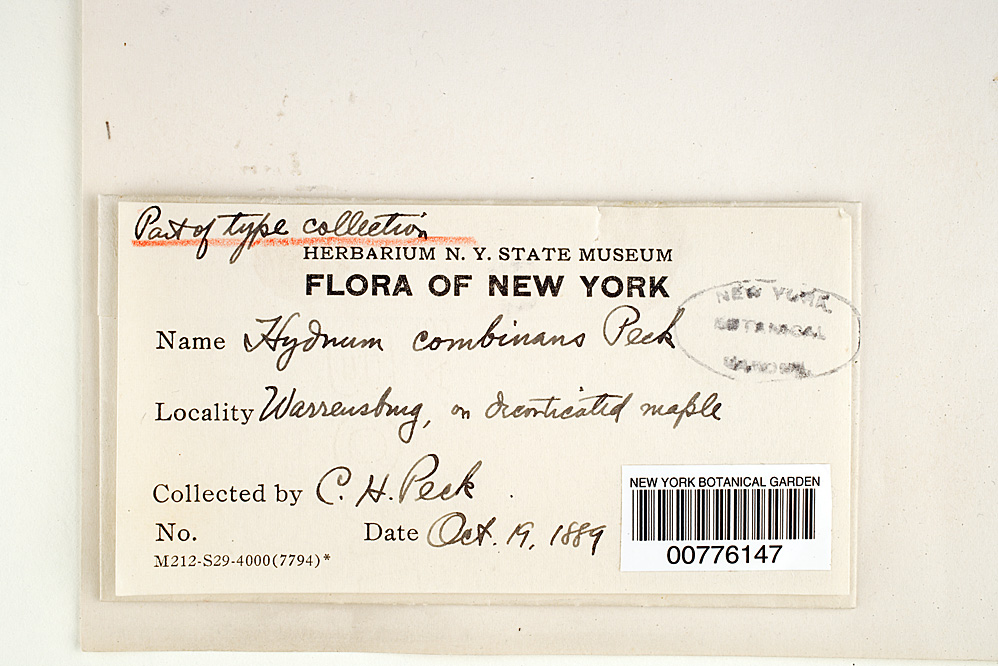 Part of type collection
HERBARIUM N. Y. STATE MUSEUM
FLORA OF NEW YORK
NEW YORK
BOTANICAL
GARDEN
Name Hydnum combinans Peck
Locality Warrensburg, on decorticated maple
Collected by C. H. Peck
No. Date Oct. 19, 1889
M212-S29-4000(7794)*
NEW YORK BOTANICAL GARDEN
00776147